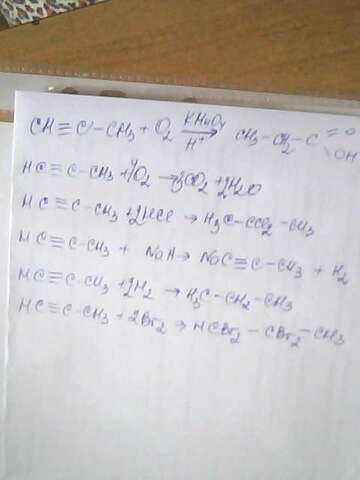 CH≡C-CH₃ + O₂ →(KMnO₄, H⁺) CH₃-CH₂-C(=O)OH
HC≡C-CH₃ + 4O₂ → 3CO₂ + 2H₂O
HC≡C-CH₃ + 2HCl → H₃C-CCl₂-CH₃
HC≡C-CH₃ + NaH → NaC≡C-CH₃ + H₂
HC≡C-CH₃ + 2H₂ → H₃C-CH₂-CH₃
HC≡C-CH₃ + 2Br₂ → HCBr₂-CBr₂-CH₃